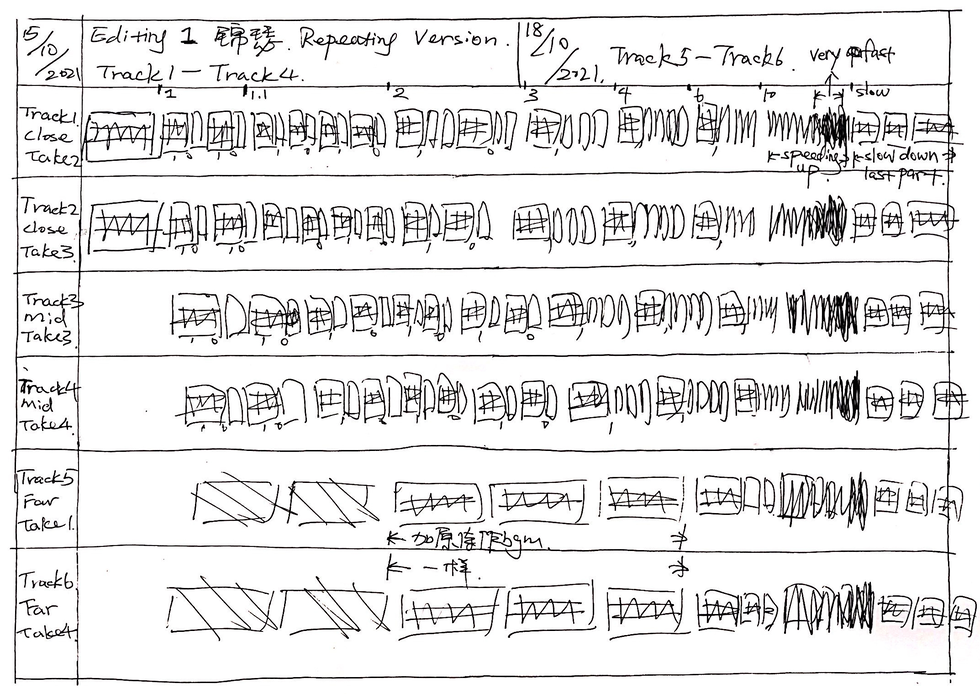 15/10/2021 Editing 1 锦 . Repeating Version. 18/10/2021. Track5-Track6. very fast
Track1-Track4.
1 1.1 2 3 4 6 10 slow
Track1
Close
Take2
speeding up slow down last part.
Track2
close
Take3.
Track3
Mid
Take3.
Track4
Mid
Take4.
Track5
Far
Take1.
加原 bgm.
一样.
Track6
Far
Take4.